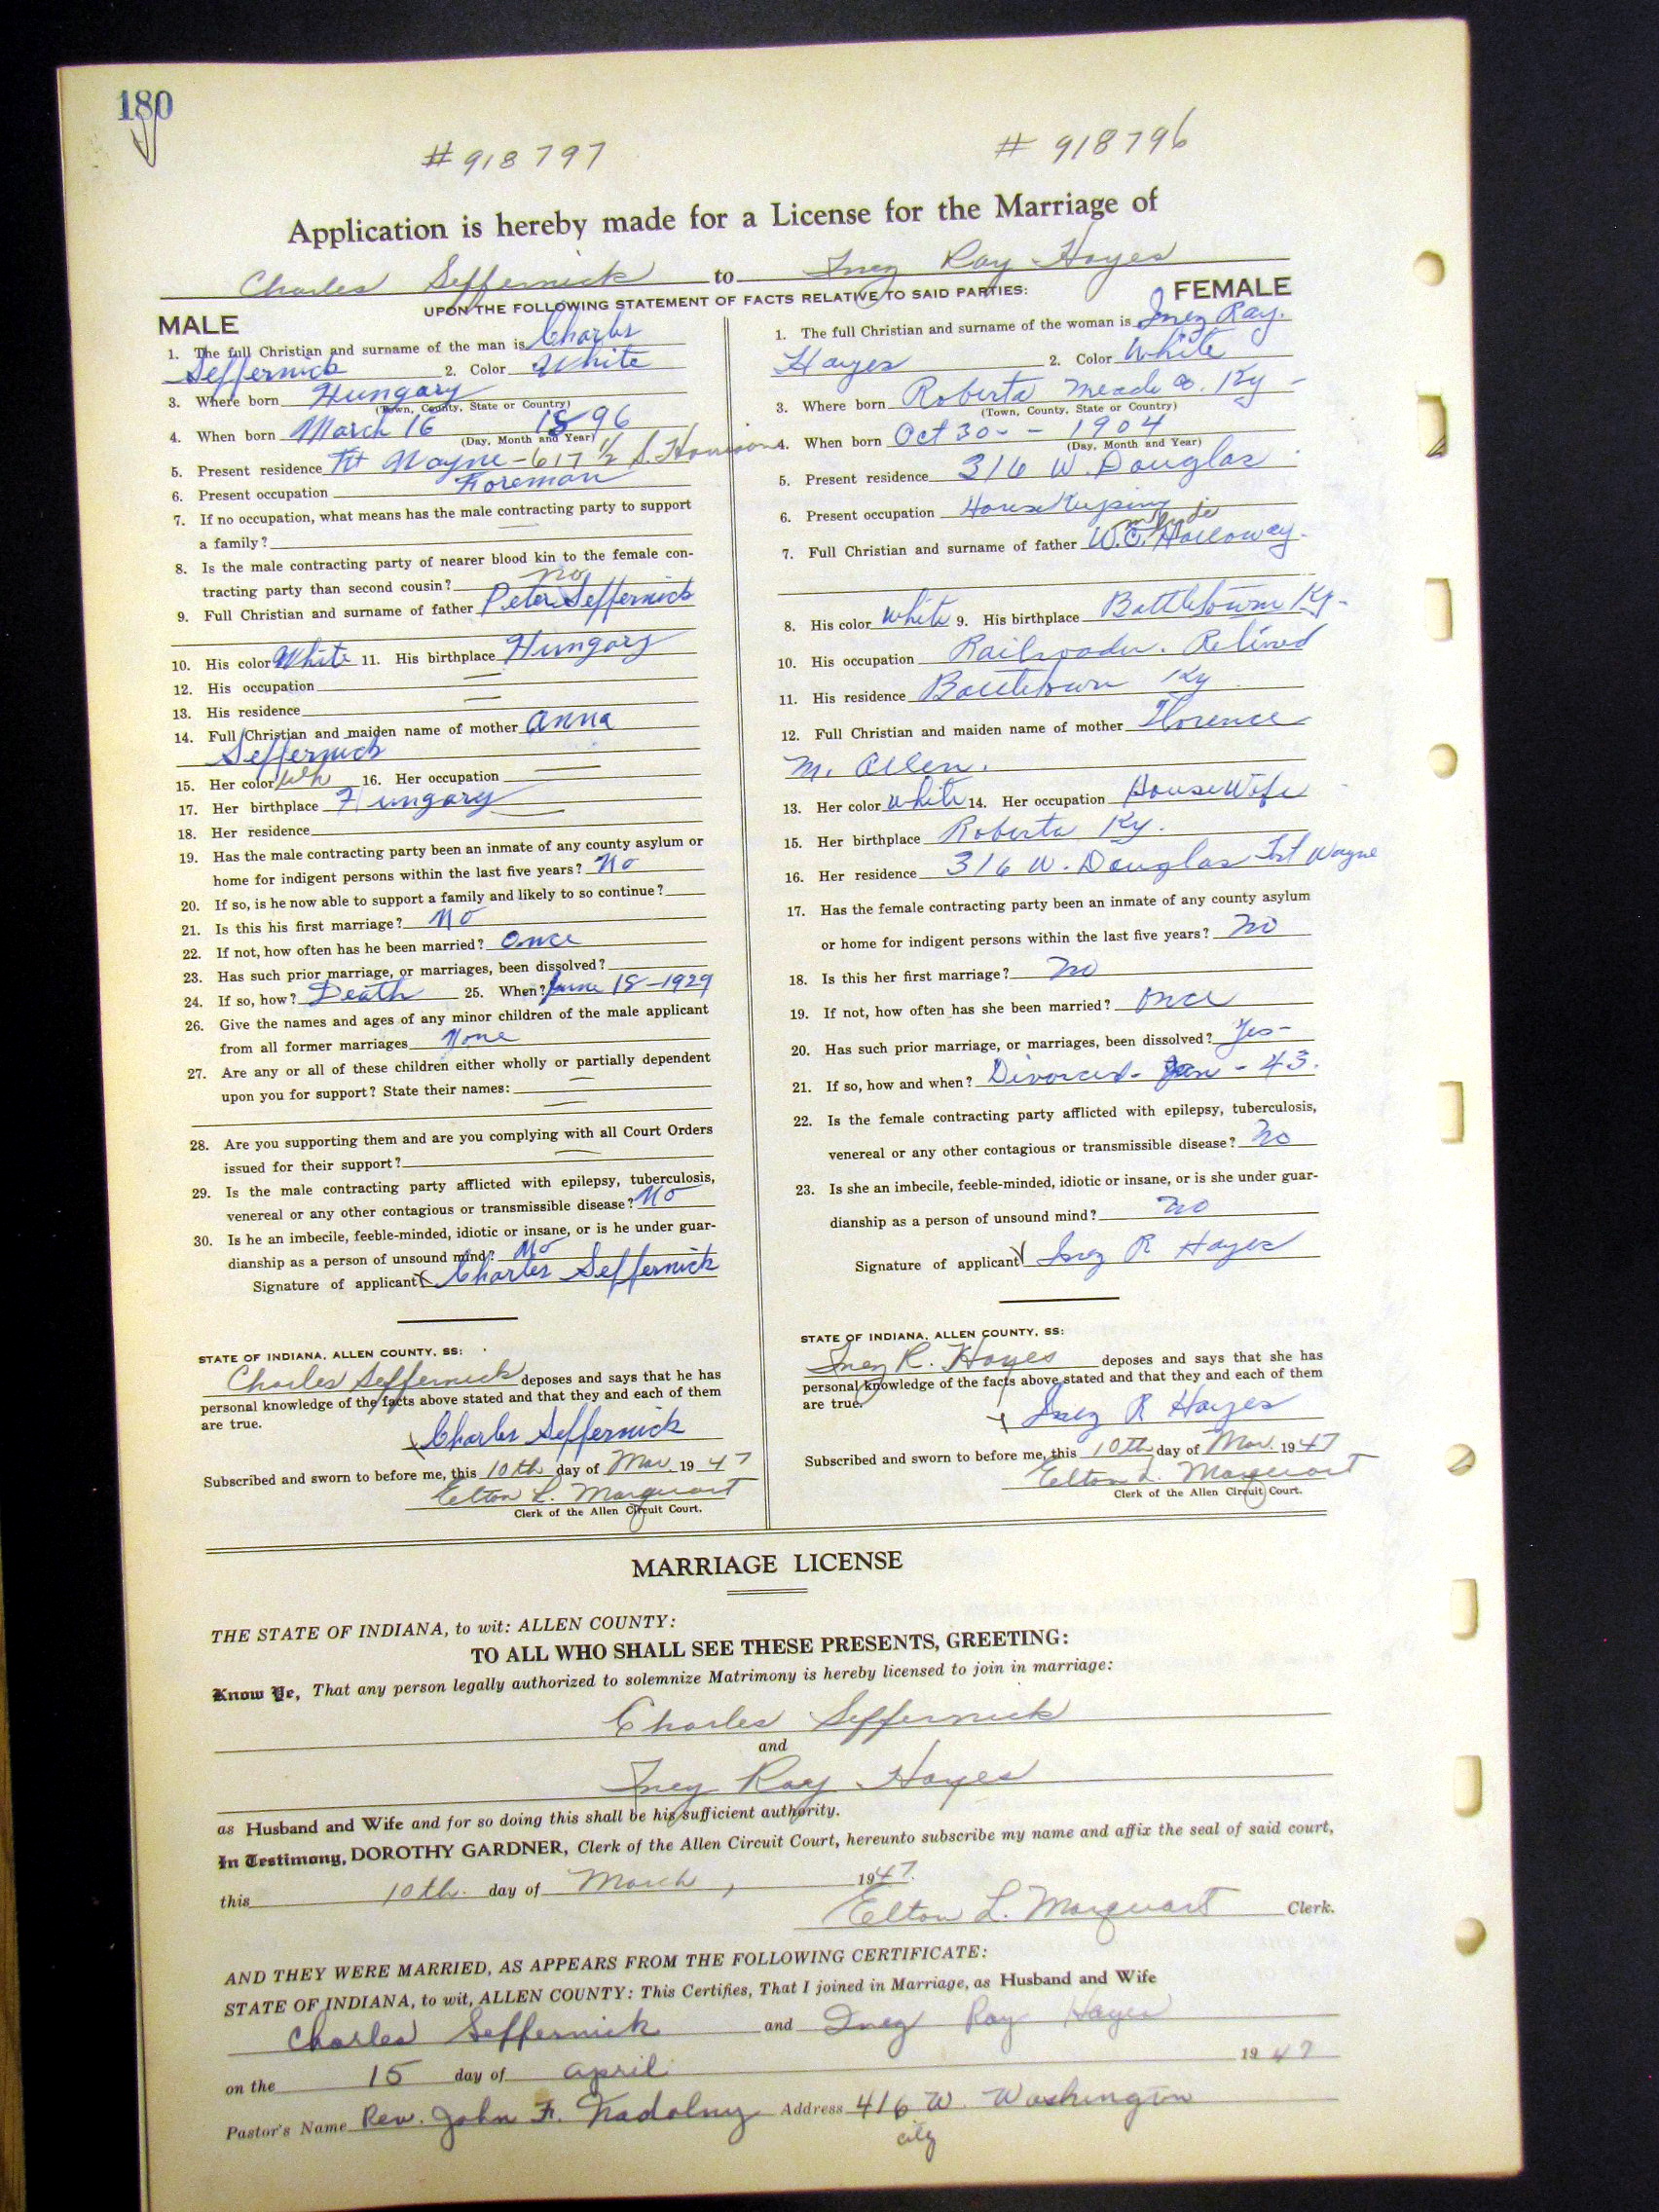 180
#918797
# 918796
Application is hereby made for a License for the Marriage of
Charles Seffernick to Inez Ray Hayes
UPON THE FOLLOWING STATEMENT OF FACTS RELATIVE TO SAID PARTIES:
MALE
1. The full Christian and surname of the man is Charles
Seffernick 2. Color White
3. Where born Hungary
(Town, County, State or Country)
4. When born March 16 1896
(Day, Month and Year)
5. Present residence Ft Wayne - 617 1/2 S. Harrison
6. Present occupation Foreman
7. If no occupation, what means has the male contracting party to support
a family? —
8. Is the male contracting party of nearer blood kin to the female con-
tracting party than second cousin? no
9. Full Christian and surname of father Peter Seffernick
10. His color White 11. His birthplace Hungary
12. His occupation —
13. His residence —
14. Full Christian and maiden name of mother Anna
Seffernick
15. Her color Wh 16. Her occupation —
17. Her birthplace Hungary
18. Her residence —
19. Has the male contracting party been an inmate of any county asylum or
home for indigent persons within the last five years? No
20. If so, is he now able to support a family and likely to so continue?
21. Is this his first marriage? No
22. If not, how often has he been married? Once
23. Has such prior marriage, or marriages, been dissolved?
24. If so, how? Death 25. When? June 18-1929
26. Give the names and ages of any minor children of the male applicant
from all former marriages None
27. Are any or all of these children either wholly or partially dependent
upon you for support? State their names: —
—
28. Are you supporting them and are you complying with all Court Orders
issued for their support? —
29. Is the male contracting party afflicted with epilepsy, tuberculosis,
venereal or any other contagious or transmissible disease? No
30. Is he an imbecile, feeble-minded, idiotic or insane, or is he under guar-
dianship as a person of unsound mind? No
Signature of applicant x Charles Seffernick
STATE OF INDIANA, ALLEN COUNTY, SS:
Charles Seffernick deposes and says that he has
personal knowledge of the facts above stated and that they and each of them
are true.
x Charles Seffernick
Subscribed and sworn to before me, this 10th day of Mar. 1947
Elton L. Marquart
Clerk of the Allen Circuit Court.
FEMALE
1. The full Christian and surname of the woman is Inez Ray.
Hayes 2. Color White
3. Where born Roberta Meade Co. Ky -
(Town, County, State or Country)
4. When born Oct 30 - - 1904
(Day, Month and Year)
5. Present residence 316 W. Douglas
6. Present occupation House Keeping
7. Full Christian and surname of father W.C. Holloway.
8. His color White 9. His birthplace Battletown Ky-
10. His occupation Railroader. Retired
11. His residence Battletown Ky
12. Full Christian and maiden name of mother Florence
M. Allen.
13. Her color White 14. Her occupation HouseWife
15. Her birthplace Roberta Ky.
16. Her residence 316 W. Douglas Ft Wayne
17. Has the female contracting party been an inmate of any county asylum
or home for indigent persons within the last five years? No
18. Is this her first marriage? No
19. If not, how often has she been married? Once
20. Has such prior marriage, or marriages, been dissolved? Yes-
21. If so, how and when? Divorced- Jan - 43.
22. Is the female contracting party afflicted with epilepsy, tuberculosis,
venereal or any other contagious or transmissible disease? No
23. Is she an imbecile, feeble-minded, idiotic or insane, or is she under guar-
dianship as a person of unsound mind? No
Signature of applicant x Inez R Hayes
STATE OF INDIANA, ALLEN COUNTY, SS:
Inez R. Hayes deposes and says that she has
personal knowledge of the facts above stated and that they and each of them
are true.
x Inez R Hayes
Subscribed and sworn to before me, this 10th day of Mar. 1947
Elton L. Marquart
Clerk of the Allen Circuit Court.
MARRIAGE LICENSE
THE STATE OF INDIANA, to wit: ALLEN COUNTY:
TO ALL WHO SHALL SEE THESE PRESENTS, GREETING:
Know Ye, That any person legally authorized to solemnize Matrimony is hereby licensed to join in marriage:
Charles Seffernick
and
Inez Ray Hayes
as Husband and Wife and for so doing this shall be his sufficient authority.
In Testimony, DOROTHY GARDNER, Clerk of the Allen Circuit Court, hereunto subscribe my name and affix the seal of said court,
this 10th. day of March, 1947.
Elton L. Marquart Clerk.
AND THEY WERE MARRIED, AS APPEARS FROM THE FOLLOWING CERTIFICATE:
STATE OF INDIANA, to wit, ALLEN COUNTY: This Certifies, That I joined in Marriage, as Husband and Wife
Charles Seffernick and Inez Ray Hayes
on the 15 day of April 1947
Pastor's Name Rev. John F. Nadolny Address 416 W. Washington
city